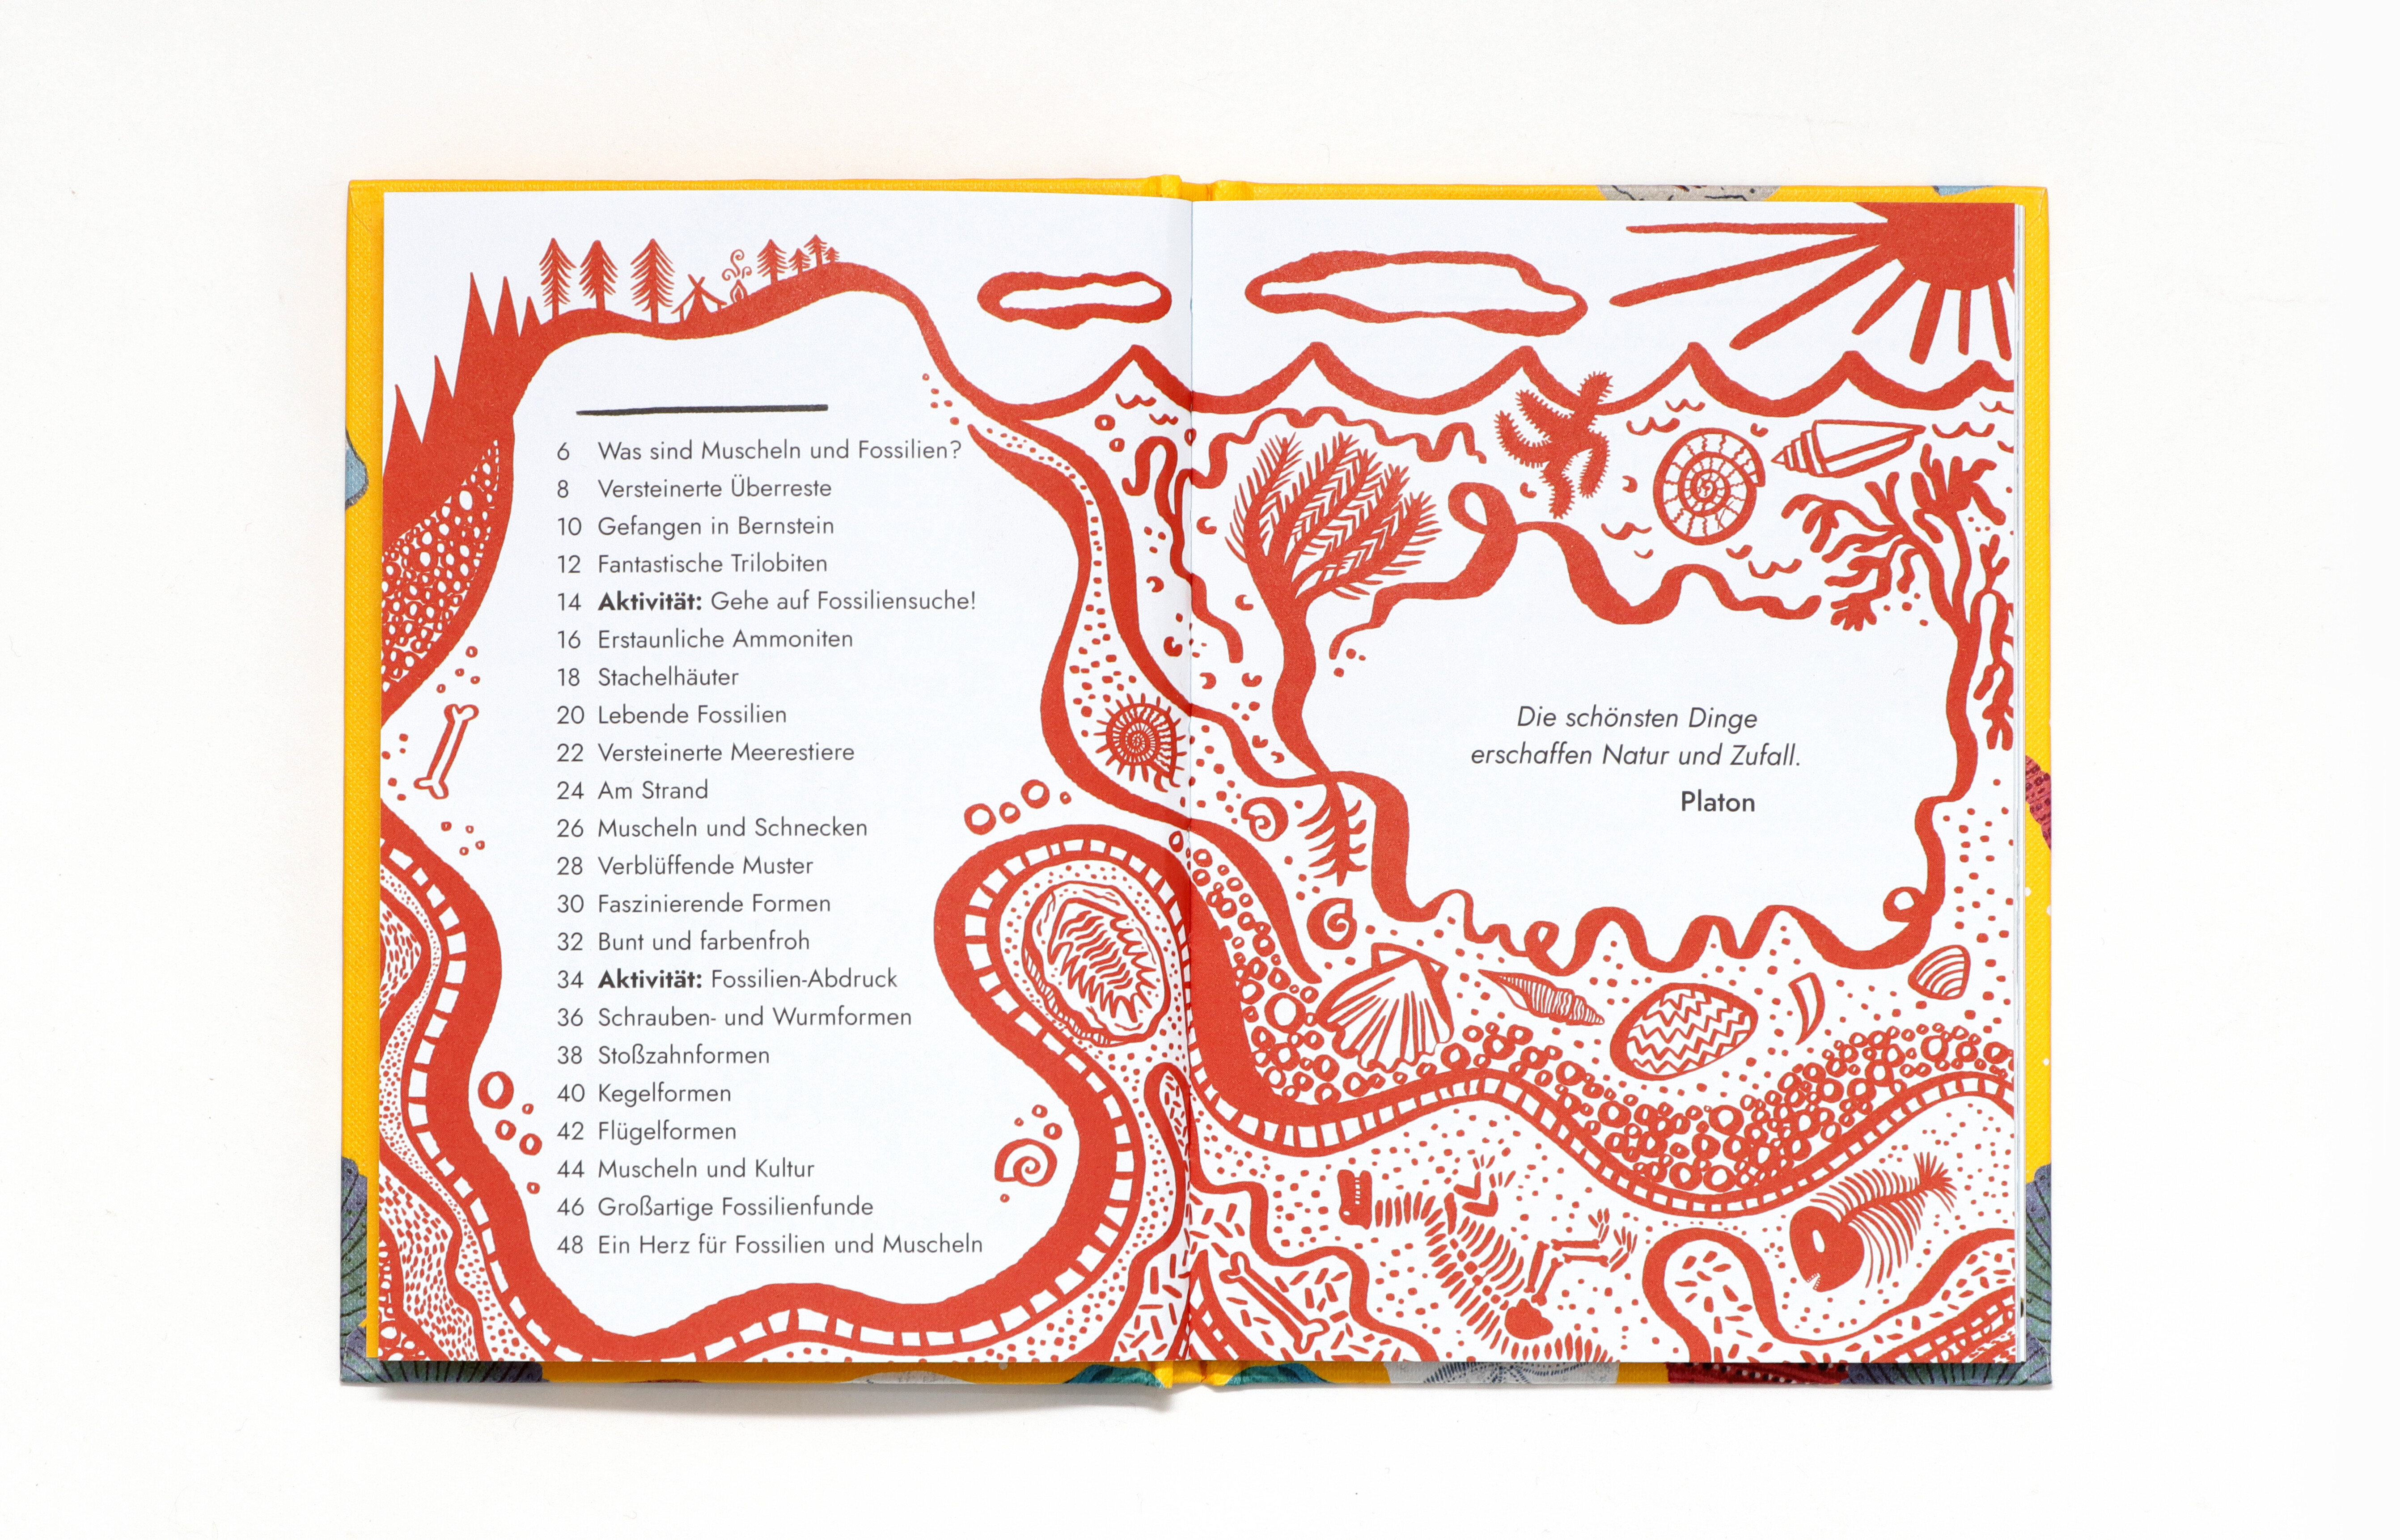 6 Was sind Muscheln und Fossilien?
8 Versteinerte Überreste
10 Gefangen in Bernstein
12 Fantastische Trilobiten
14 Aktivität: Gehe auf Fossiliensuche!
16 Erstaunliche Ammoniten
18 Stachelhäuter
20 Lebende Fossilien
22 Versteinerte Meerestiere
24 Am Strand
26 Muscheln und Schnecken
28 Verblüffende Muster
30 Faszinierende Formen
32 Bunt und farbenfroh
34 Aktivität: Fossilien-Abdruck
36 Schrauben- und Wurmformen
38 Stoßzahnformen
40 Kegelformen
42 Flügelformen
44 Muscheln und Kultur
46 Großartige Fossilienfunde
48 Ein Herz für Fossilien und Muscheln
Die schönsten Dinge
erschaffen Natur und Zufall.
Platon